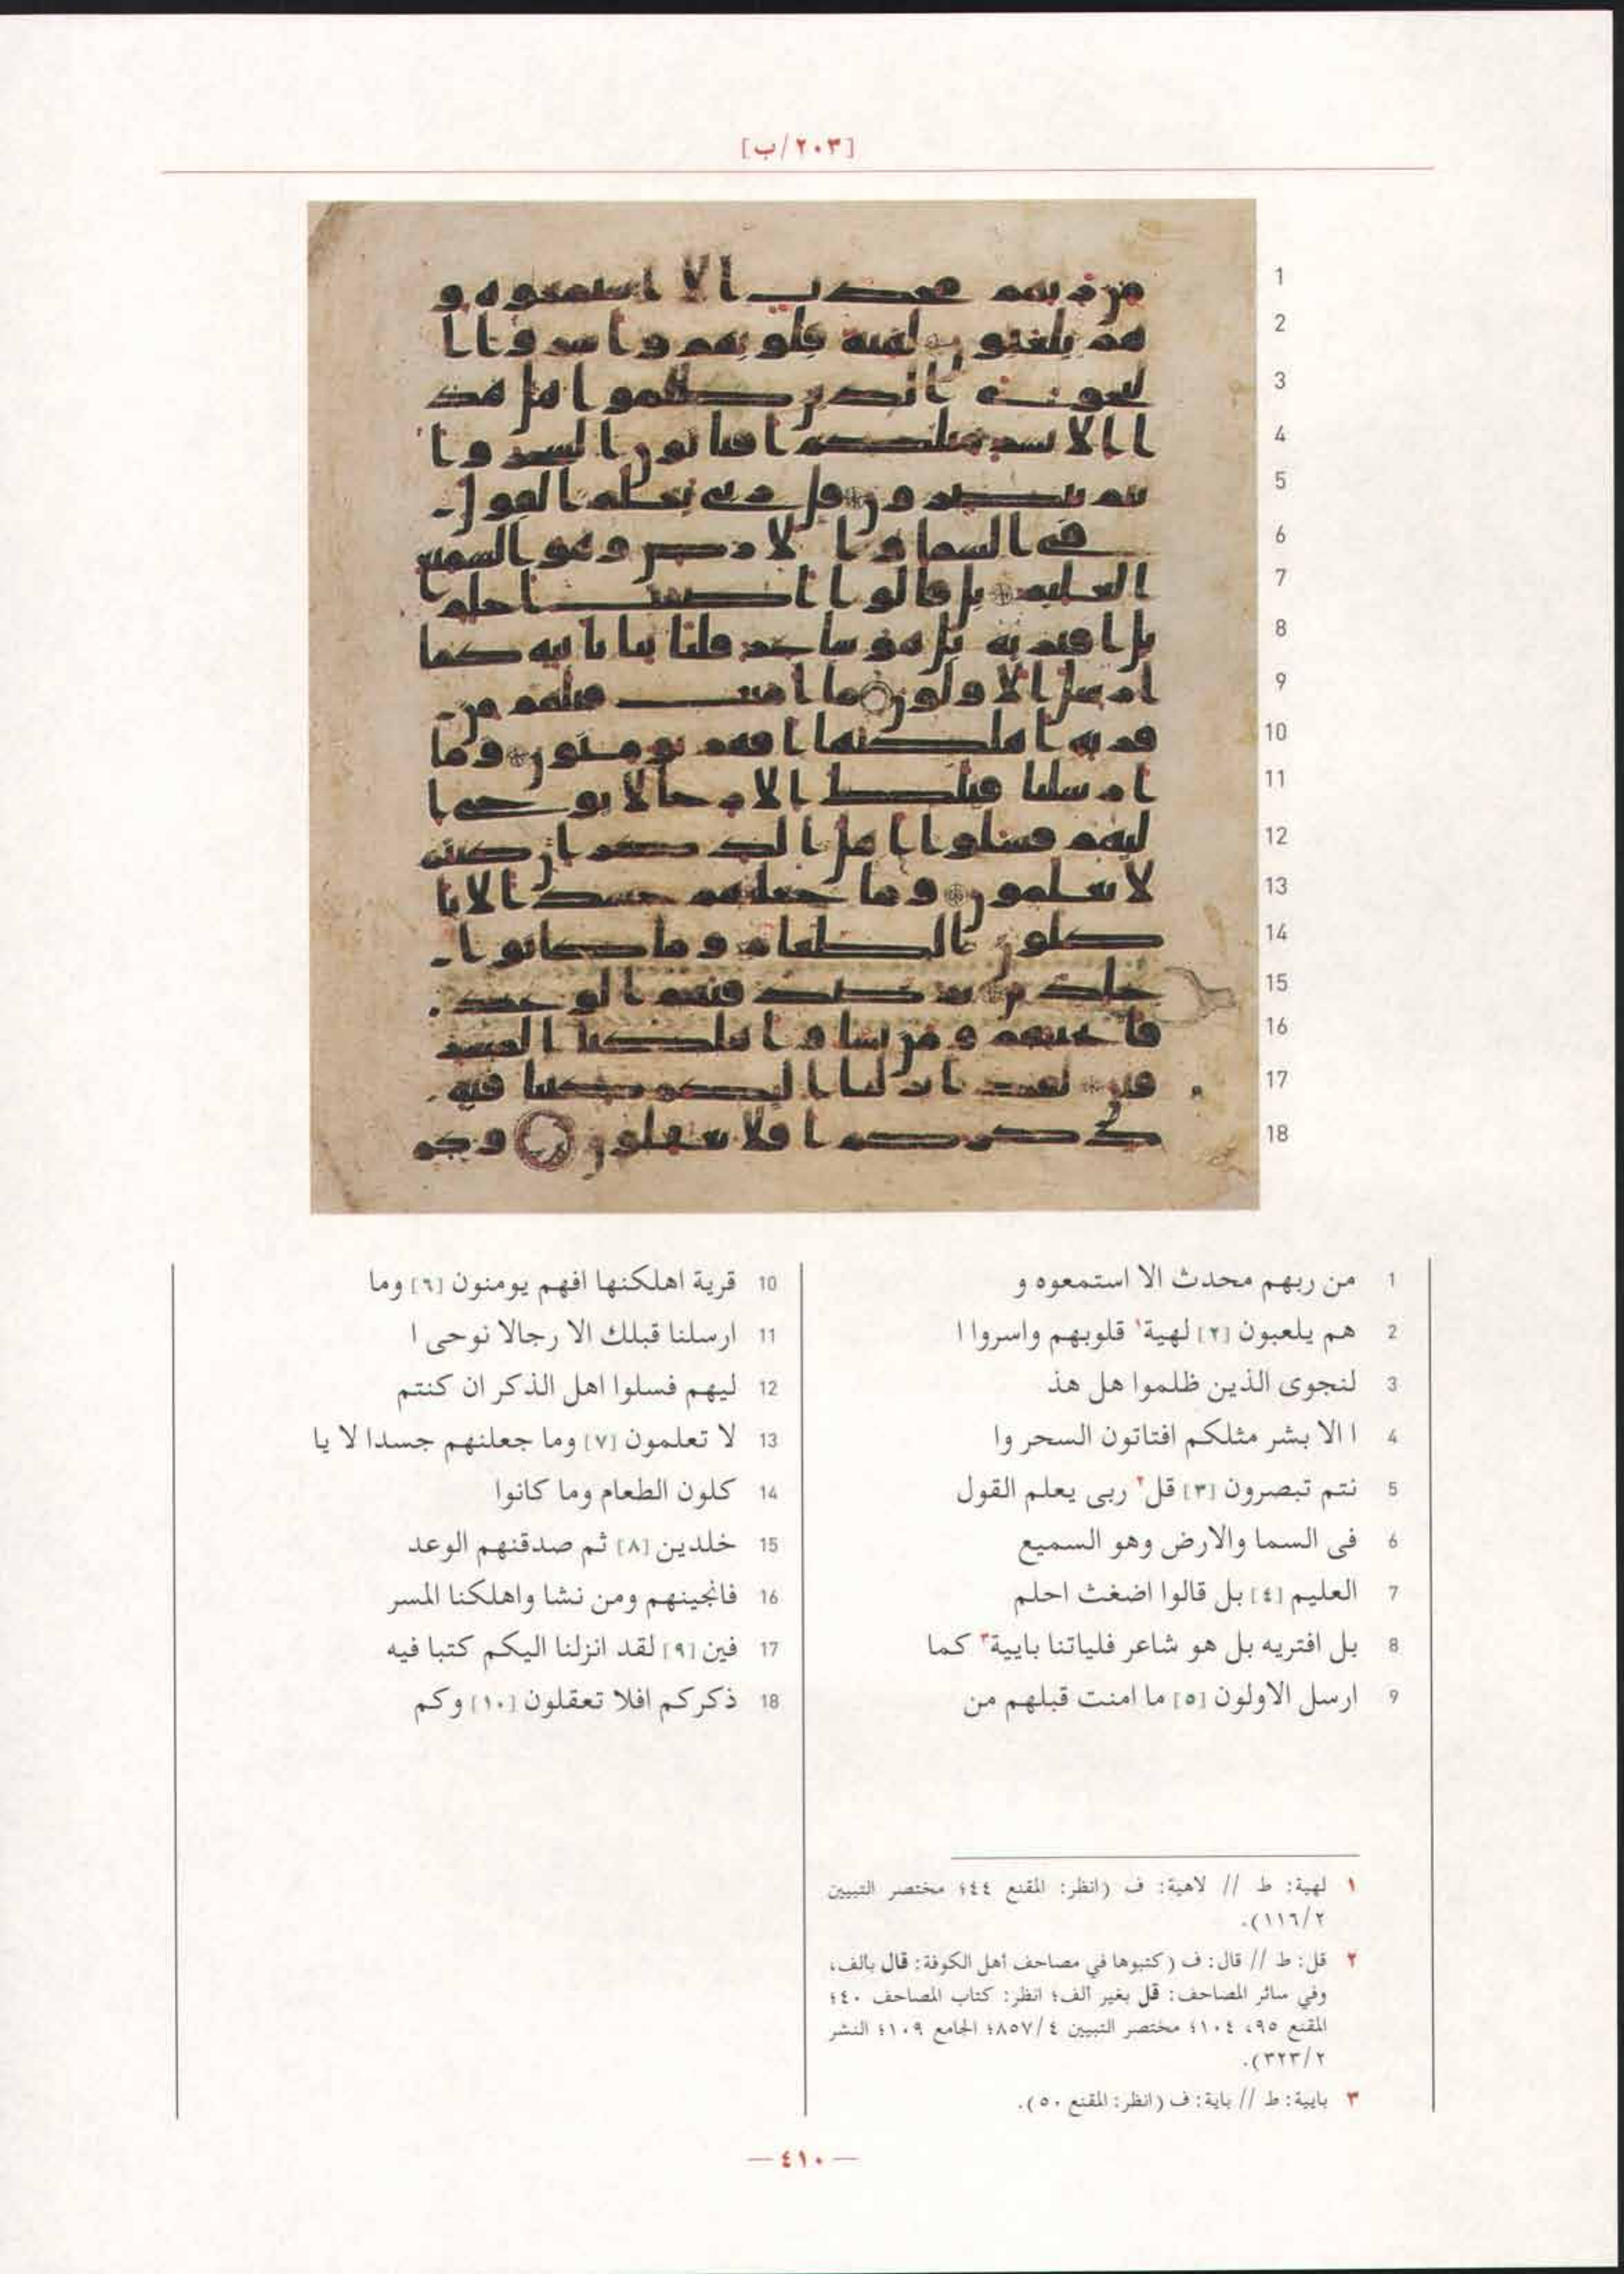 [٢٠٣/ب]
1 من ربهم محدث الا استمعوه و
2 هم يلعبون [٢] لهية١ قلوبهم واسروا ا
3 لنجوى الذين ظلموا هل هذ
4 ا الا بشر مثلكم افتاتون السحر وا
5 نتم تبصرون [٣] قل٢ ربى يعلم القول
6 فى السما والارض وهو السميع
7 العليم [٤] بل قالوا اضغث احلم
8 بل افتريه بل هو شاعر فلياتنا بايية٣ كما
9 ارسل الاولون [٥] ما امنت قبلهم من
10 قرية اهلكنها افهم يومنون [٦] وما
11 ارسلنا قبلك الا رجالا نوحى ا
12 ليهم فسلوا اهل الذكر ان كنتم
13 لا تعلمون [٧] وما جعلنهم جسدا لا يا
14 كلون الطعام وما كانوا
15 خلدين [٨] ثم صدقنهم الوعد
16 فانجينهم ومن نشا واهلكنا المسر
17 فين [٩] لقد انزلنا اليكم كتبا فيه
18 ذكركم افلا تعقلون [١٠] وكم
١ لهية: ط // لاهية: ف (انظر: المقنع ٤٤؛ مختصر التبيين
٢/١١٦).
٢ قل: ط // قال: ف (كتبوها في مصاحف أهل الكوفة: قال بالف،
وفي سائر المصاحف: قل بغير الف؛ انظر: كتاب المصاحف ٤٠؛
المقنع ٩٥، ١٠٤؛ مختصر التبيين ٨٥٧/٤؛ الجامع ١٠٩؛ النشر
٣٢٣/٢).
٣ بايية: ط // باية: ف (انظر: المقنع ٥٠).
— ٤١٠ —